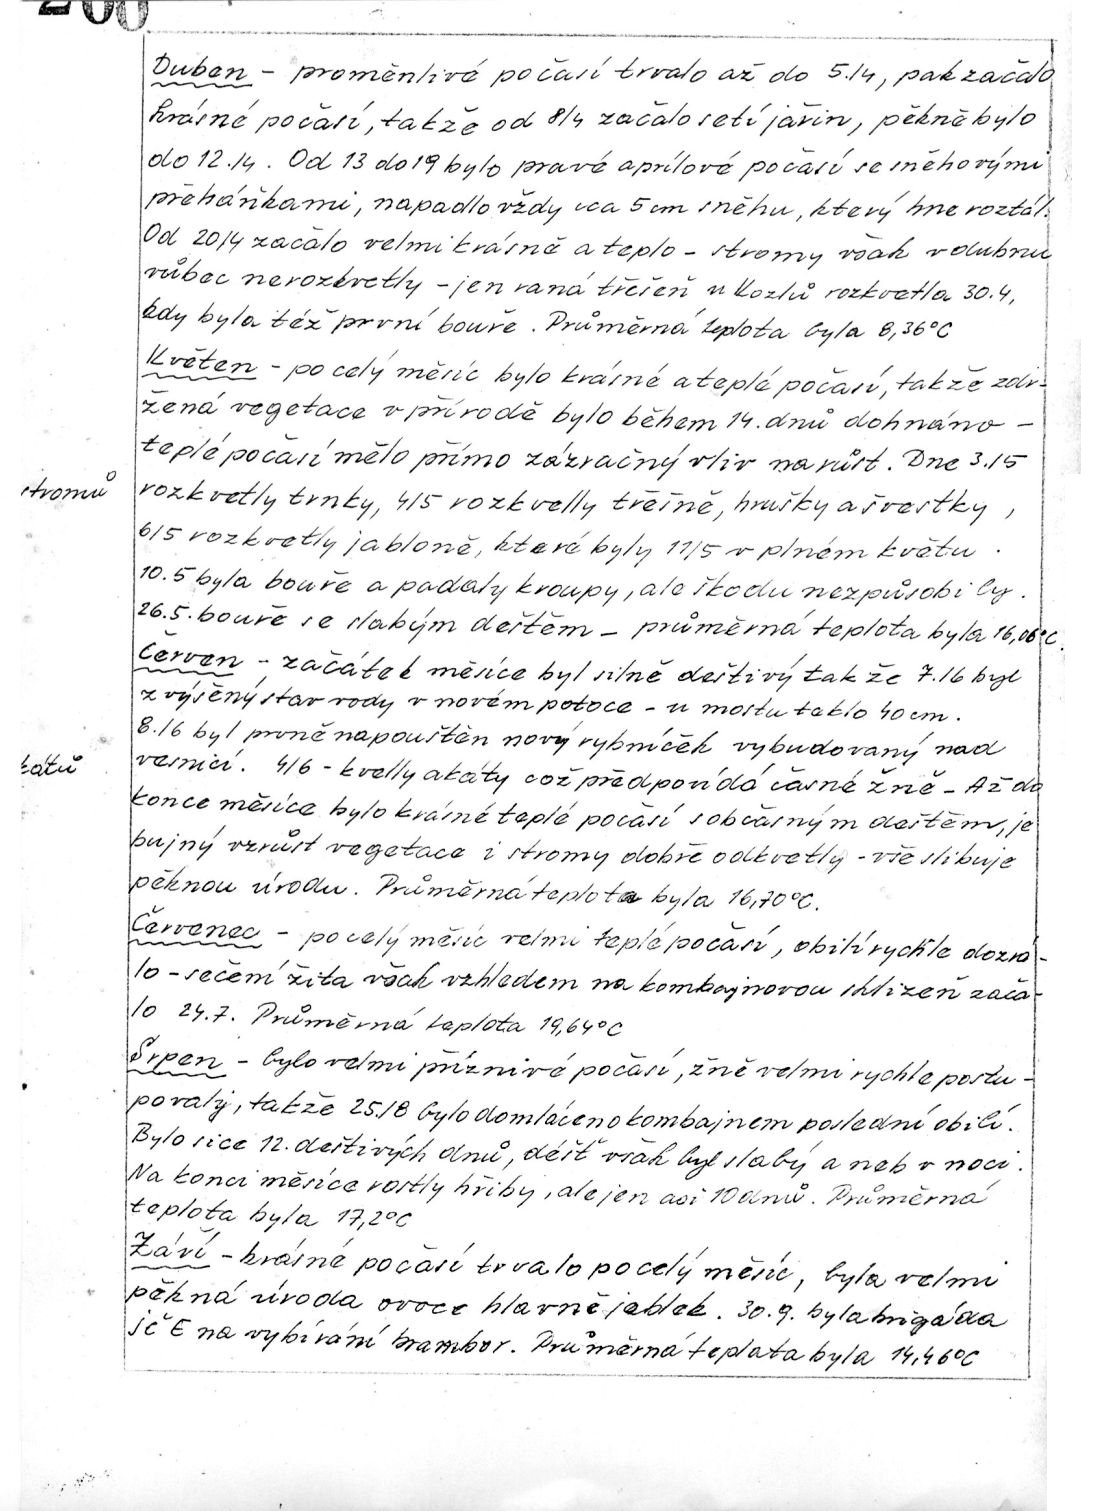 200
Duben – proměnlivé počasí trvalo až do 5./4, pak začalo
krásné počasí, takže od 8/4 začalo setí jařin, pěkně bylo
do 12./4. Od 13 do 19 bylo pravé aprílové počasí se sněhovými
přeháňkami, napadlo vždy cca 5 cm sněhu, který hne roztál.
Od 20/4 začalo velmi krásně a teplo – stromy však v dubnu
vůbec nerozkvetly – jen raná třešeň u Kozlů rozkvetla 30.4,
kdy byla též první bouře. Průměrná teplota byla 8,36°C
Květen – po celý měsíc bylo krásné a teplé počasí, takže zdr-
žená vegetace v přírodě bylo během 14. dnů dohnáno –
teplé počasí mělo přímo zázračný vliv na růst. Dne 3./5
stromů
rozkvetly trnky, 4/5 rozkvetly třešně, hrušky a švestky,
6/5 rozkvetly jabloně, které byly 11/5 v plném květu.
10.5 byla bouře a padaly kroupy, ale škodu nezpůsobily.
26.5. bouře se slabým deštěm – průměrná teplota byla 16,06°C.
Červen – začátek měsíce byl silně deštivý takže 7./6 byl
zvýšený stav vody v novém potoce – u mostu teklo 40 cm.
8./6 byl prvně napouštěn nový rybníček vybudovaný nad
katů
vesnicí. 4/6 – kvetly akáty což předpovídá časné žně – Až do
konce měsíce bylo krásné teplé počasí s občasným deštěm, je
bujný vzrůst vegetace i stromy dobře odkvetly – vše slibuje
pěknou úrodu. Průměrná teplota byla 16,70°C.
Červenec – po celý měsíc velmi teplé počasí, obilí rychle dozrá-
lo – sečení žita však vzhledem na kombajnovou sklizeň zača-
lo 24.7. Průměrná teplota 19,64°C
Srpen – bylo velmi příznivé počasí, žně velmi rychle postu-
povaly, takže 25./8 bylo domláceno kombajnem poslední obilí.
Bylo sice 12. deštivých dnů, déšť však byl slabý a neb v noci.
Na konci měsíce rostly hřiby, ale jen asi 10 dnů. Průměrná
teplota byla 17,2°C
Září – krásné počasí trvalo po celý měsíc, byla velmi
pěkná úroda ovoce hlavně jablek. 30.9. byla brigáda
JčE na vybírání brambor. Průměrná teplota byla 14,46°C